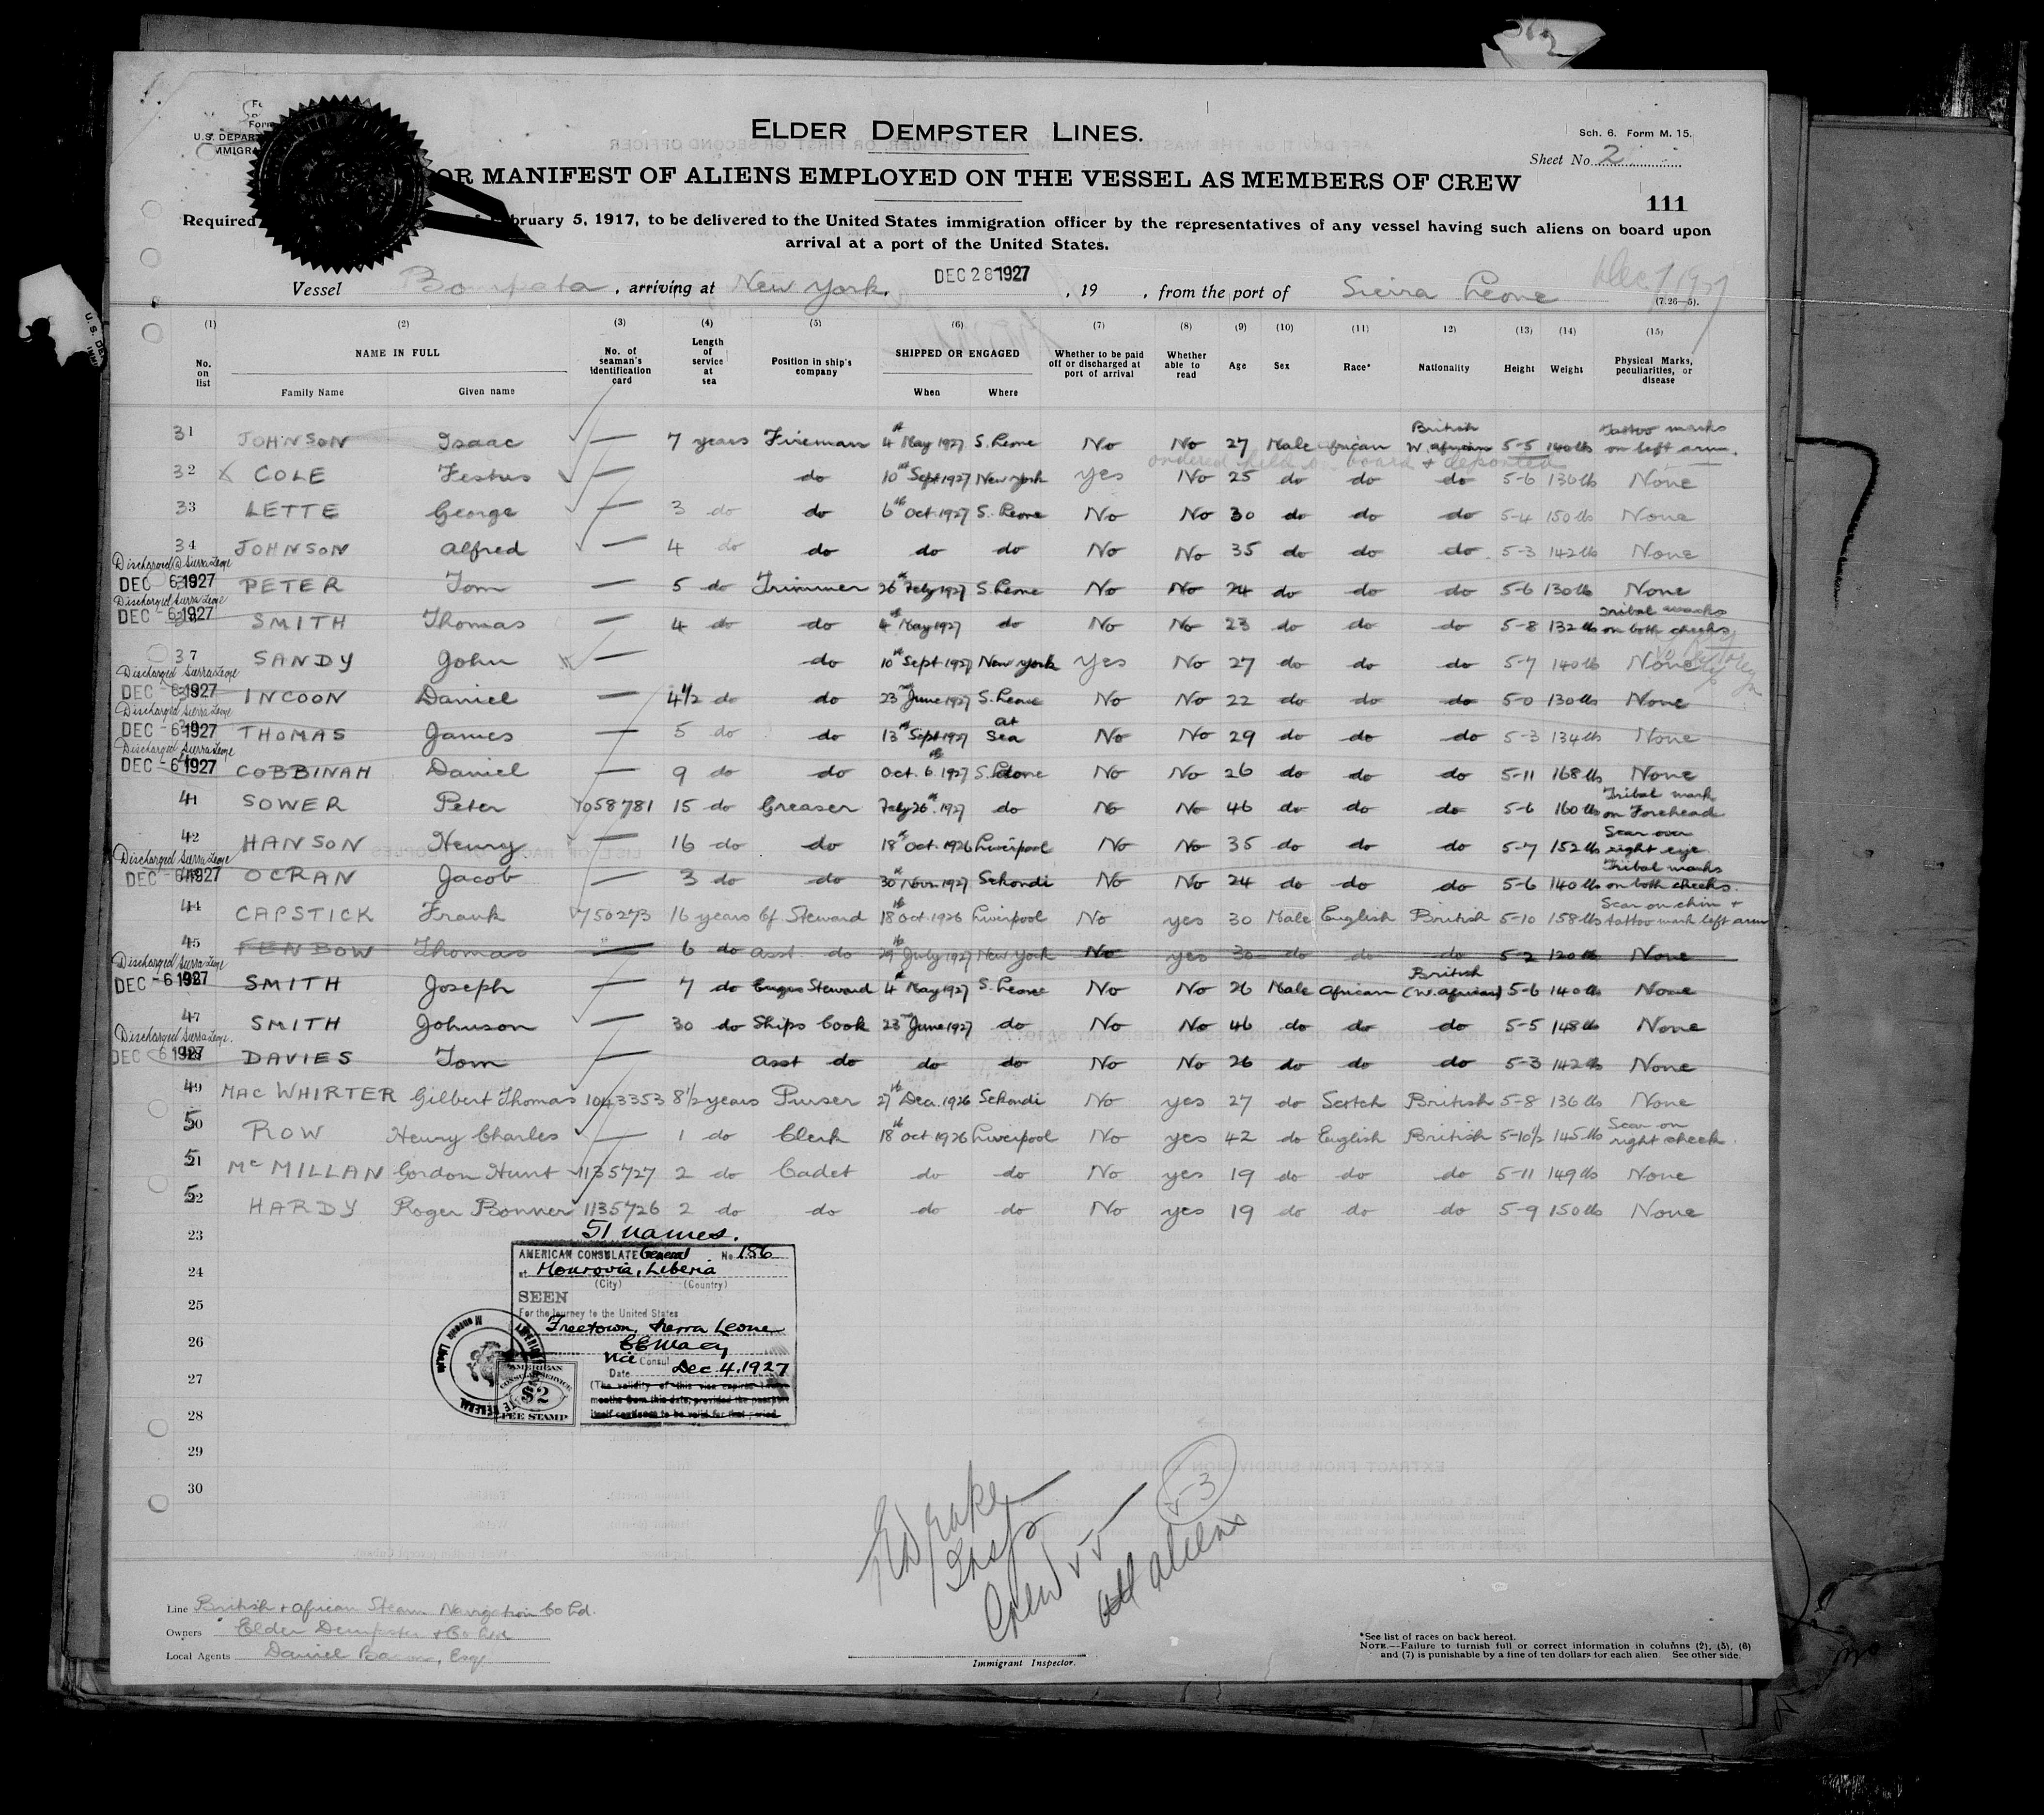 ELDER DEMPSTER LINES.
Sch. 6. Form M. 15.
Sheet No. 2
U.S. DEPART
OR MANIFEST OF ALIENS EMPLOYED ON THE VESSEL AS MEMBERS OF CREW
111
Required February 5, 1917, to be delivered to the United States immigration officer by the representatives of any vessel having such aliens on board upon
arrival at a port of the United States.
Vessel Bompata, arriving at New York, DEC 28 1927, 19 , from the port of Sierra Leone Dec 7 1927
(7.26—5).
(1) (2) (3) (4) (5) (6) (7) (8) (9) (10) (11) 12) (13) (14) (15)
No. on list NAME IN FULL Family Name Given name No. of seaman's identification card Length of service at sea Position in ship's company SHIPPED OR ENGAGED When Where Whether to be paid off or discharged at port of arrival Whether able to read Age Sex Race* Nationality Height Weight Physical Marks, peculiarities, or disease
31 JOHNSON Isaac — 7 years Fireman 4th May 1927 S. Leone No No 27 Male African British W. African 5-5 140 lbs Tattoo marks on left arm.
ordered held on board & deported
32 X COLE Festus — do 10th Sept 1927 New York Yes No 25 do do do 5-6 130 lb None
33 LETTE George — 3 do do 6th Oct. 1927 S. Leone No No 30 do do do 5-4 150 lbs None
34 JOHNSON Alfred — 4 do do do do No No 35 do do do 5-3 142 lbs None
Discharged @ Sierra Leone
DEC 6 1927 PETER Tom — 5 do Trimmer 26th Feby 1927 S. Leone No No 24 do do do 5-6 130 lb None
Discharged Sierra Leone
DEC - 6 1927 SMITH Thomas — 4 do do 4th May 1927 do No No 23 do do do 5-8 132 lbs Tribal marks on both cheeks
37 SANDY John — do 10th Sept 1927 New York Yes No 27 do do do 5-7 140 lb None
Discharged Sierra Leone
DEC - 6 1927 INCOON Daniel — 4 1/2 do do 23rd June 1927 S. Leone No No 22 do do do 5-0 130 lb None
Discharged Sierra Leone
DEC - 6 1927 THOMAS James — 5 do do 13th Sept 1927 at Sea No No 29 do do do 5-3 134 lb None
Discharged Sierra Leone
DEC - 6 1927 COBBINAH Daniel — 9 do do Oct. 6th 1927 S. Leone No No 26 do do do 5-11 168 lb None
41 SOWER Peter 1058781 15 do Greaser Feby 26th 1927 do No No 46 do do do 5-6 160 lb Tribal mark on Forehead
42 HANSON Henry — 16 do do 18th Oct. 1926 Liverpool No No 35 do do do 5-7 152 lb Scar over right eye.
Discharged Sierra Leone
DEC - 6 1927 OCRAN Jacob — 3 do do 30th Nov. 1927 Sekondi No No 24 do do do 5-6 140 lb Tribal marks on both cheeks.
44 CAPSTICK Frank 750273 16 years Cf Steward 18th Oct. 1926 Liverpool No yes 30 Male English British 5-10 158 lbs Scar on chin + tattoo mark left arm
45 FENBOW Thomas — 6 do Asst. do 29th July 1927 New York No yes 30 do do do 5-2 120 lb None
Discharged Sierra Leone
DEC - 6 1927 SMITH Joseph — 7 do Engrs Steward 4th May 1927 S. Leone No No 26 Male African British (W. African) 5-6 140 lb None
47 SMITH Johnson — 30 do Ships Cook 23rd June 1927 do No No 46 do do do 5-5 148 lb None
Discharged Sierra Leone.
DEC 6 1927 DAVIES Tom — Asst do do do No No 26 do do do 5-3 142 lb None
49 MACWHIRTER Gilbert Thomas 1043353 8 1/2 years Purser 27th Dec. 1926 Sekondi No yes 27 do Scotch British 5-8 136 lb None
50 ROW Henry Charles — 1 do Clerk 18th Oct 1926 Liverpool No yes 42 do English British 5-10 1/2 145 lb Scar on right cheek.
51 McMILLAN Gordon Hunt 1135727 2 do Cadet do do No yes 19 do do do 5-11 149 lb None
52 HARDY Roger Bonner 1135726 2 do do do do No yes 19 do do do 5-9 150 lb None
23 51 names.
24
25
26
27
28
29
30
AMERICAN CONSULATE General No. 186
at Monrovia, Liberia
(City) (Country)
SEEN
For the journey to the United States
Freetown, Sierra Leone
Vice Consul
Date Dec. 4. 1927
(The validity of this visa expires
months from this date, provided the passport
itself continues to be valid for that period.
AMERICAN
CONSULAR SERVICE
$2
FEE STAMP
Drake
Insp
Crew 55
all aliens
Line British & African Steam Navigation Co Ltd.
Owners Elder Dempster & Co Ltd
Local Agents Daniel Bacon, Esq
Immigrant Inspector.
*See list of races on back hereof.
NOTE.—Failure to furnish full or correct information in columns (2), (5), (6)
and (7) is punishable by a fine of ten dollars for each alien. See other side.